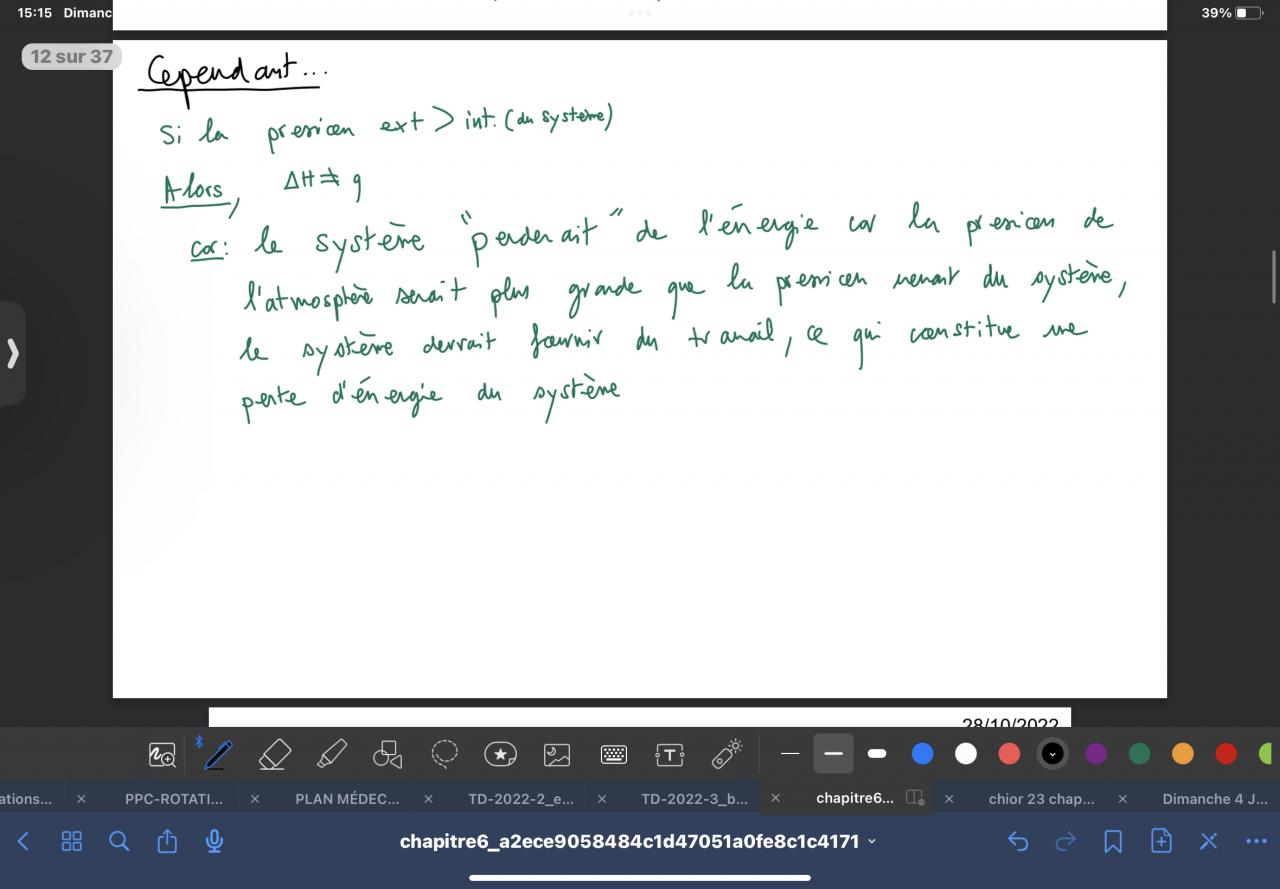 15:15 Dimanc
39%
12 sur 37
Cependant...
Si la pression ext > int. (du système)
Alors, ΔH ≠ q
car: le système "perderait" de l'énergie car la pression de
l'atmosphère serait plus grande que la pression venant du système,
le système devrait fournir du travail, ce qui constitue une
perte d'énergie du système
28/10/2022
T
ations... × PPC-ROTATI... × PLAN MÉDEC... × TD-2022-2_e... × TD-2022-3_b... × chapitre6... × chior 23 chap... × Dimanche 4 J...
chapitre6_a2ece9058484c1d47051a0fe8c1c4171